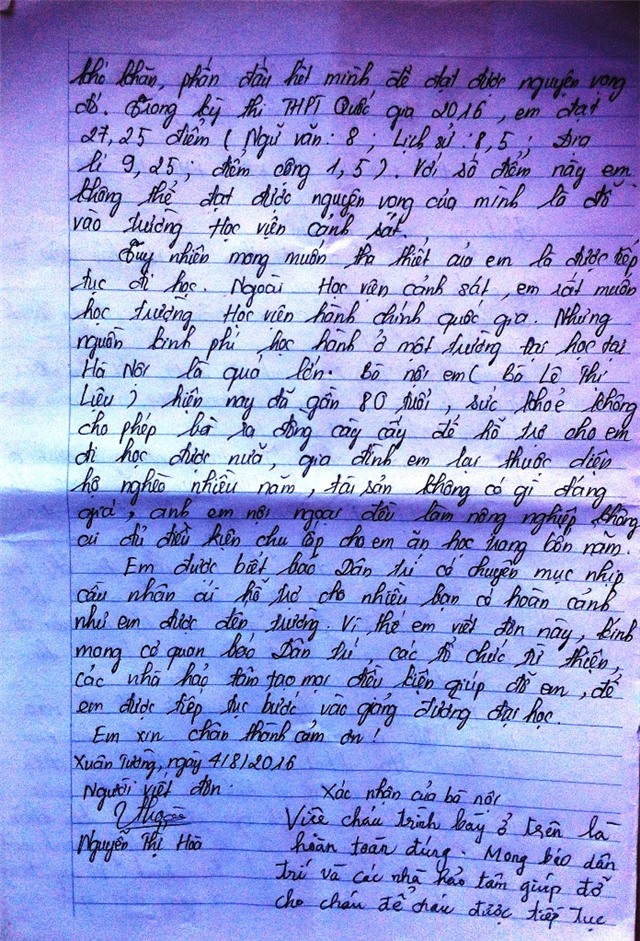 khó khăn, phấn đấu hết mình để đạt được nguyện vọng
đó. Trong kỳ thi THPT Quốc gia 2016, em đạt
27,25 điểm (Ngữ văn: 8; Lịch sử: 8,5; Địa
lí 9,25; điểm cộng 1,5). Với số điểm này em
không thể đạt được nguyện vọng của mình là đỗ
vào trường Học viện cảnh sát.
Tuy nhiên mong muốn tha thiết của em là được tiếp
tục đi học. Ngoài Học viện cảnh sát, em rất muốn
học trường Học viện hành chính quốc gia. Nhưng
nguồn kinh phí học hành ở một trường đại học tại
Hà Nội là quá lớn. Bà nội em (Bà Lê Thị
Liệu) hiện nay đã gần 80 tuổi, sức khoẻ không
cho phép bà ra đồng cày cấy để hỗ trợ cho em
đi học được nữa, gia đình em lại thuộc diện
hộ nghèo nhiều năm, tài sản không có gì đáng
giá, anh em nội ngoại đều làm nông nghiệp không
ai đủ điều kiện chu cấp cho em ăn học trong bốn năm.
Em được biết báo Dân trí có chuyên mục nhịp
cầu nhân ái hỗ trợ cho nhiều bạn có hoàn cảnh
như em được đến trường. Vì thế em viết đơn này, kính
mong cơ quan báo Dân trí, các tổ chức từ thiện,
các nhà hảo tâm tạo mọi điều kiện giúp đỡ em, để
em được tiếp tục bước vào giảng đường đại học.
Em xin chân thành cảm ơn!
Xuân Tường, ngày 4/8/2016
Người viết đơn
Nguyễn Thị Hoà
Xác nhận của bà nội
Việc cháu trình bày ở trên là
hoàn toàn đúng. Mong báo dân
trí và các nhà hảo tâm giúp đỡ
cho cháu để cháu được tiếp tục